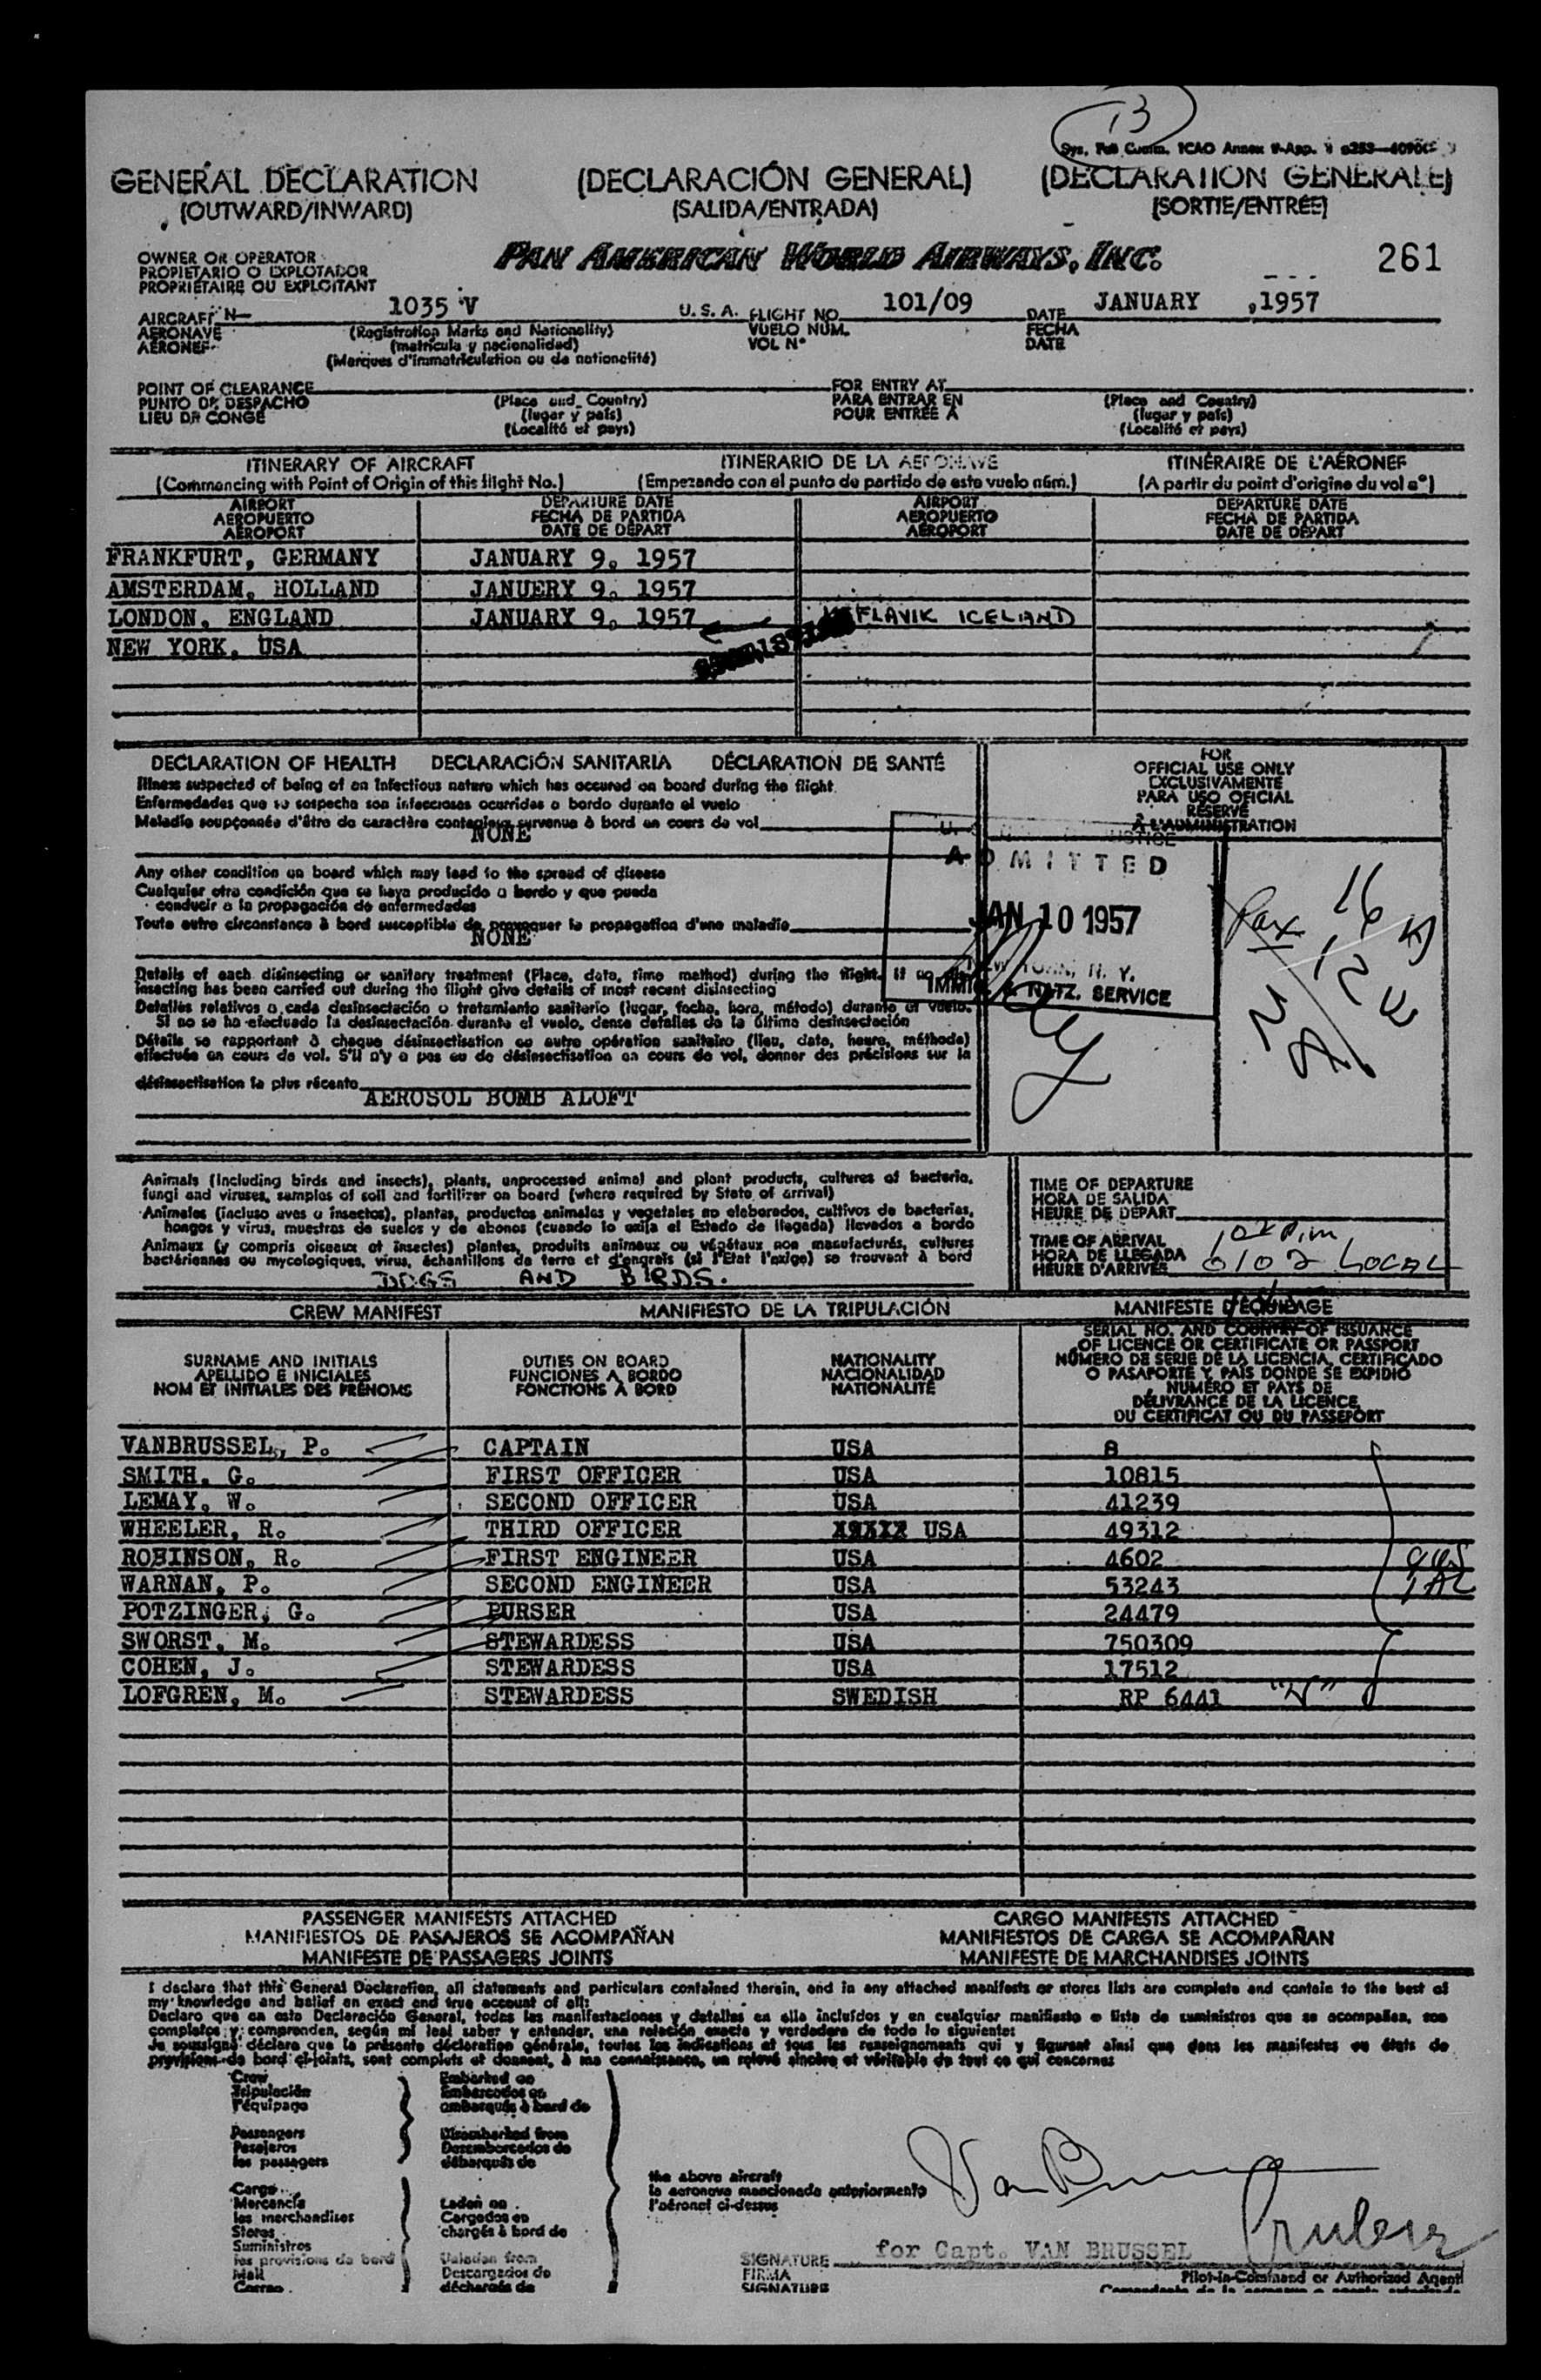 13
GENERAL DECLARATION (DECLARACIÓN GENERAL) (DECLARATION GENERALE)
(OUTWARD/INWARD) (SALIDA/ENTRADA) (SORTIE/ENTRÉE)
OWNER OR OPERATOR
PROPIETARIO O EXPLOTADOR
PROPRIÉTAIRE OU EXPLOITANT
PAN AMERICAN WORLD AIRWAYS, INC. 261
AIRCRAFT N— 1035 V U. S. A. FLIGHT NO. 101/09 DATE JANUARY ,1957
AERONAVE (Registration Marks and Nationality) VUELO NÚM. FECHA
AÉRONEF (matrícula y nacionalidad) VOL N° DATE
(Marques d'immatriculation ou de nationalité)
POINT OF CLEARANCE FOR ENTRY AT
PUNTO DE DESPACHO (Place and Country) PARA ENTRAR EN (Place and Country)
LIEU DE CONGÉ (lugar y país) POUR ENTRÉE A (lugar y país)
(Localité et pays) (Localité et pays)
ITINERARY OF AIRCRAFT ITINERARIO DE LA AERONAVE ITINÉRAIRE DE L'AÉRONEF
(Commencing with Point of Origin of this flight No.) (Empezando con el punto de partida de este vuelo núm.) (A partir du point d'origine du vol n°)
AIRPORT DEPARTURE DATE AIRPORT DEPARTURE DATE
AEROPUERTO FECHA DE PARTIDA AEROPUERTO FECHA DE PARTIDA
AÉROPORT DATE DE DÉPART AÉROPORT DATE DE DÉPART
FRANKFURT, GERMANY JANUARY 9, 1957
AMSTERDAM, HOLLAND JANUERY 9, 1957
LONDON, ENGLAND JANUARY 9, 1957 KEFLAVIK ICELAND
NEW YORK, USA
DECLARATION OF HEALTH DECLARACIÓN SANITARIA DÉCLARATION DE SANTÉ
Illness suspected of being of an infectious nature which has occured on board during the flight
Enfermedades que se sospecha son infecciosas ocurridas a bordo durante el vuelo
Maladie soupçonnée d'être de caractère contagieux survenue à bord en cours de vol
NONE
FOR
OFFICIAL USE ONLY
EXCLUSIVAMENTE
PARA USO OFICIAL
RÉSERVÉ
À L'ADMINISTRATION
Any other condition on board which may lead to the spread of disease
Cualquier otra condición que se haya producido a bordo y que pueda
conducir a la propagación de enfermedades
Toute autre circonstance à bord susceptible de provoquer la propagation d'une maladie
NONE
ADMITTED
JAN 10 1957
NEW YORK, N. Y.
IMMIG. & NATZ. SERVICE
Pax
Details of each disinsecting or sanitary treatment (Place, date, time method) during the flight. If no dis-
insecting has been carried out during the flight give details of most recent disinsecting
Detalles relativos a cada desinsectación o tratamiento sanitario (lugar, fecha, hora, método) durante el vuelo.
Si no se ha efectuado la desinsectación durante el vuelo, dense detalles de la última desinsectación
Détails se rapportant à chaque désinsectisation ou autre opération sanitaire (lieu, date, heure, méthode)
effectuée en cours de vol. S'il n'y a pas eu de désinsectisation en cours de vol, donner des précisions sur la
désinsectisation la plus récente
AEROSOL BOMB ALOFT
Animals (including birds and insects), plants, unprocessed animal and plant products, cultures of bacteria,
fungi and viruses, samples of soil and fertilizer on board (where required by State of arrival)
Animales (incluso aves o insectos), plantas, productos animales y vegetales no elaborados, cultivos de bacterias,
hongos y virus, muestras de suelos y de abonos (cuando lo exija el Estado de llegada) llevados a bordo
Animaux (y compris oiseaux et insectes) plantes, produits animaux ou végétaux non manufacturés, cultures
bactériennes ou mycologiques, virus, échantillons de terre et d'engrais (si l'État l'exige) se trouvant à bord
DOGS AND BIRDS.
TIME OF DEPARTURE
HORA DE SALIDA
HEURE DE DÉPART
TIME OF ARRIVAL
HORA DE LLEGADA
HEURE D'ARRIVÉE 0102 LOCAL
CREW MANIFEST MANIFIESTO DE LA TRIPULACIÓN MANIFESTE D'ÉQUIPAGE
SURNAME AND INITIALS DUTIES ON BOARD NATIONALITY SERIAL NO. AND COUNTRY OF ISSUANCE
APELLIDO E INICIALES FUNCIONES A BORDO NACIONALIDAD OF LICENCE OR CERTIFICATE OR PASSPORT
NOM ET INITIALES DES PRÉNOMS FONCTIONS À BORD NATIONALITÉ NÚMERO DE SERIE DE LA LICENCIA, CERTIFICADO
O PASAPORTE Y PAÍS DONDE SE EXPIDIÓ
NUMÉRO ET PAYS DE
DÉLIVRANCE DE LA LICENCE,
DU CERTIFICAT OU DU PASSEPORT
VANBRUSSEL, P. CAPTAIN USA 8
SMITH, G. FIRST OFFICER USA 10815
LEMAY, W. SECOND OFFICER USA 41239
WHEELER, R. THIRD OFFICER USA 49312
ROBINSON, R. FIRST ENGINEER USA 4602
WARNAN, P. SECOND ENGINEER USA 53243
POTZINGER, G. PURSER USA 24479
SWORST, M. STEWARDESS USA 750309
COHEN, J. STEWARDESS USA 17512
LOFGREN, M. STEWARDESS SWEDISH RP 6441
PASSENGER MANIFESTS ATTACHED CARGO MANIFESTS ATTACHED
MANIFIESTOS DE PASAJEROS SE ACOMPAÑAN MANIFIESTOS DE CARGA SE ACOMPAÑAN
MANIFESTE DE PASSAGERS JOINTS MANIFESTE DE MARCHANDISES JOINTS
I declare that this General Declaration, all statements and particulars contained therein, and in any attached manifests or stores lists are complete and contain to the best of
my knowledge and belief an exact and true account of all:
Declaro que en esta Declaración General, todas las manifestaciones y detalles en ella incluídos y en cualquier manifiesto o lista de suministros que se acompañen, son
completos y comprenden, según mi leal saber y entender, una relación exacta y verdadera de todo lo siguiente:
Je soussigné déclare que la présente déclaration générale, toutes les indications et tous les renseignements qui y figurent ainsi que dans les manifestes ou états de
provisions de bord ci-joints, sont complets et donnent, à ma connaissance, un relevé sincère et véritable de tout ce qui concerne:
Crew Embarked on
Tripulación Embarcados en
l'équipage embarqués à bord de
Passengers Disembarked from
Pasajeros Desembarcados de
les passagers débarqués de
the above aircraft
la aeronave mencionada anteriormente
l'aéronef ci-dessus
Cargo
Mercancía Laden on
les marchandises Cargados en
Stores chargés à bord de
Suministros
les provisions de bord Unladen from
Mail Descargados de
Correo déchargés de
Van Brussel
SIGNATURE for Capt. VAN BRUSSEL
FIRMA Pilot-in-Command or Authorized Agent
SIGNATURE